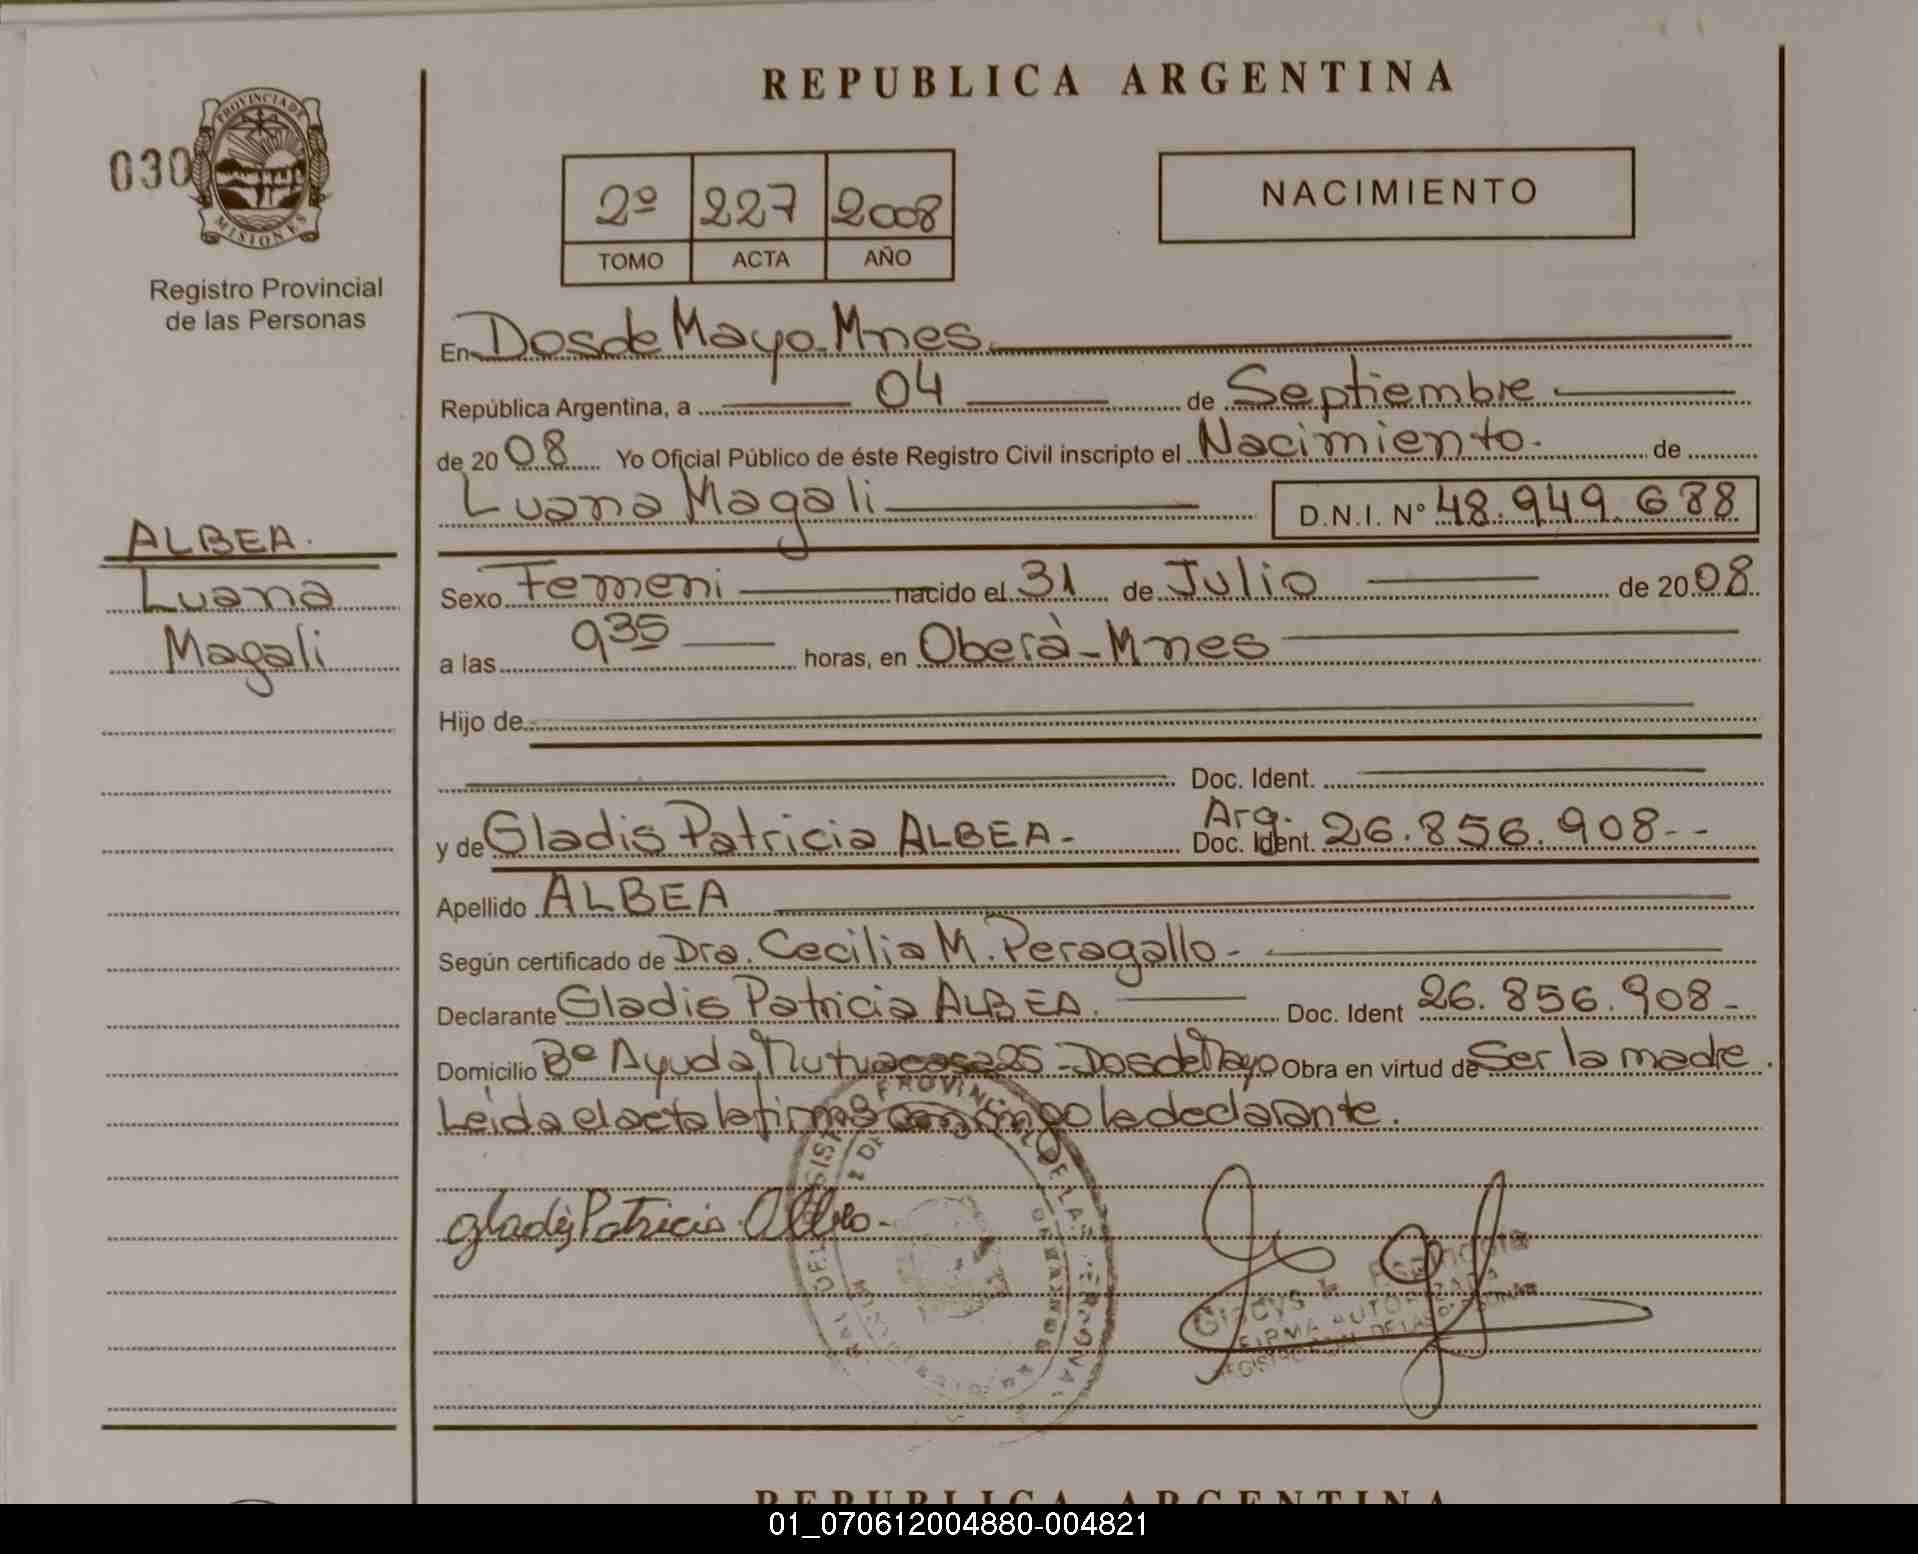 REPUBLICA ARGENTINA
030
PROVINCIA DE
MISIONES
Registro Provincial
de las Personas
2º 227 2008
TOMO ACTA AÑO
NACIMIENTO
En Dos de Mayo-Mnes.
República Argentina, a 04 de Septiembre
de 2008 Yo Oficial Público de éste Registro Civil inscripto el Nacimiento. de
Luana Magali D.N.I. Nº 48.949.688
ALBEA.
Luana
Magali
Sexo Femeni nacido el 31 de Julio de 2008
a las 9 35 horas, en Oberà-Mnes
Hijo de
Doc. Ident.
y de Gladis Patricia ALBEA- Arg. Doc. Ident. 26.856.908--
Apellido ALBEA
Según certificado de Dra. Cecilia M. Peragallo-
Declarante Gladis Patricia ALBEA. Doc. Ident 26.856.908-
Domicilio Bº Ayuda Mutua casa 25 - Dos de Mayo Obra en virtud de Ser la madre.
Leida el acta la firma conmigo la declarante.
gladis Patricia Albea-
PROVINCIAL DE LAS
FIRMA AUTORIZADA
REPUBLICA ARGENTINA
01_070612004880-004821